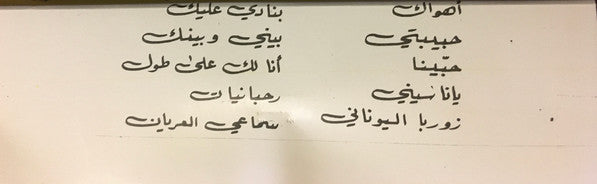 أهواك بنادي عليك
حبيبتي بيني وبينك
حبّينا أنا لك على طول
يا ناسيني رحبانيات
زوربا اليوناني سماعي العريان